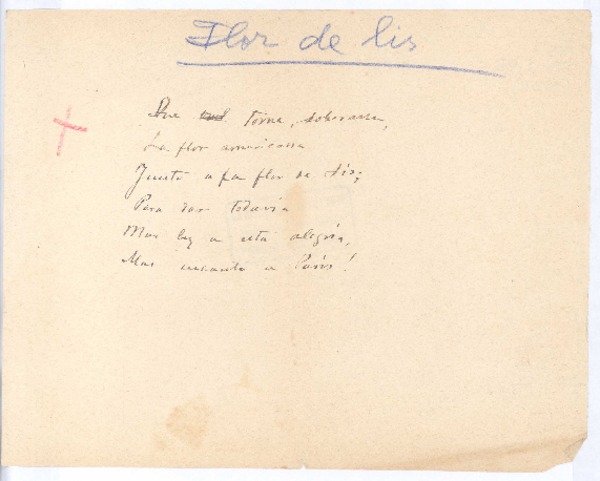 Flor de lis
Que torne, soberana,
La flor americana
Junto a la flor de lis;
Para dar todavía
Mas luz a esta alegría,
Mas encanto a París!